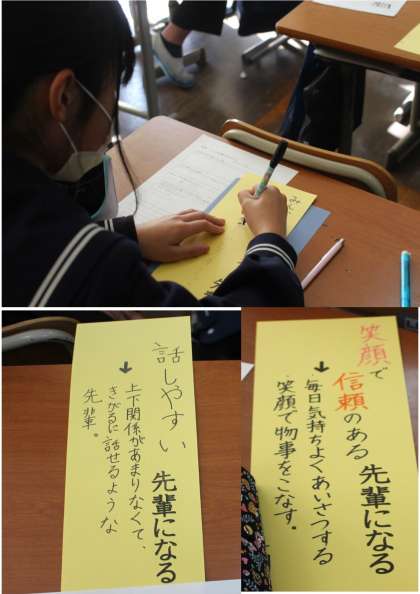 話しやすい 先輩になる
↓
上下関係があまりなくて、
きがるに話せるような
先輩。
笑顔で
信頼のある 先輩になる
↓
・毎日気持ちよくあいさつする
・笑顔で物事をこなす。